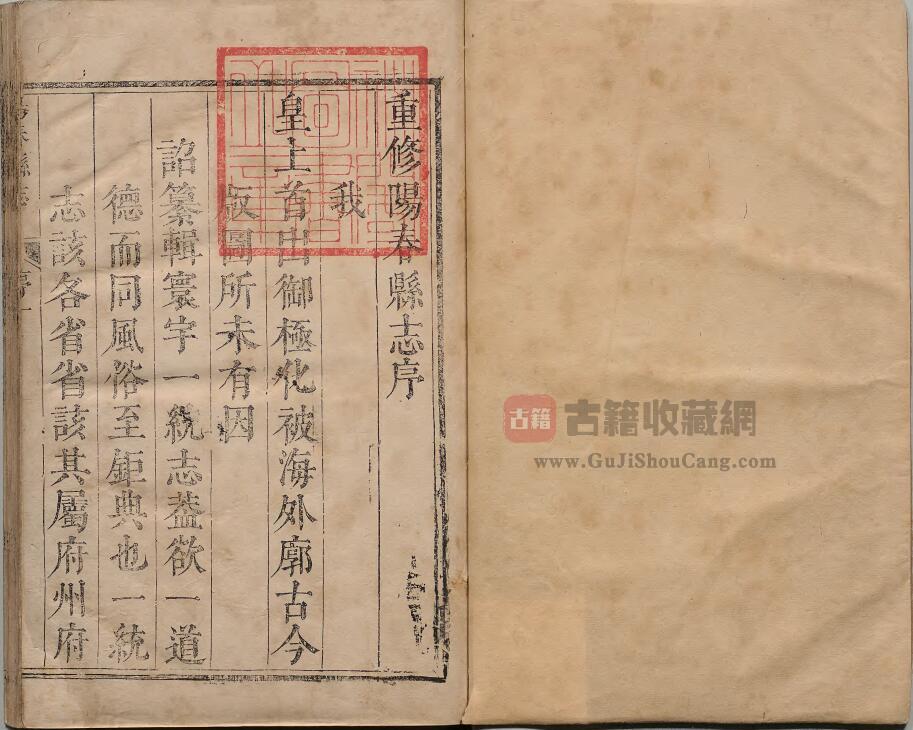 重修陽春縣志序
我
皇上首出御極化被海外廓古今
版圖所未有因
詔纂輯寰宇一統志蓋欲一道
德而同風俗至鉅典也一統
志該各省省該其屬府州府
古籍
古籍收藏網
www.GuJiShouCang.com